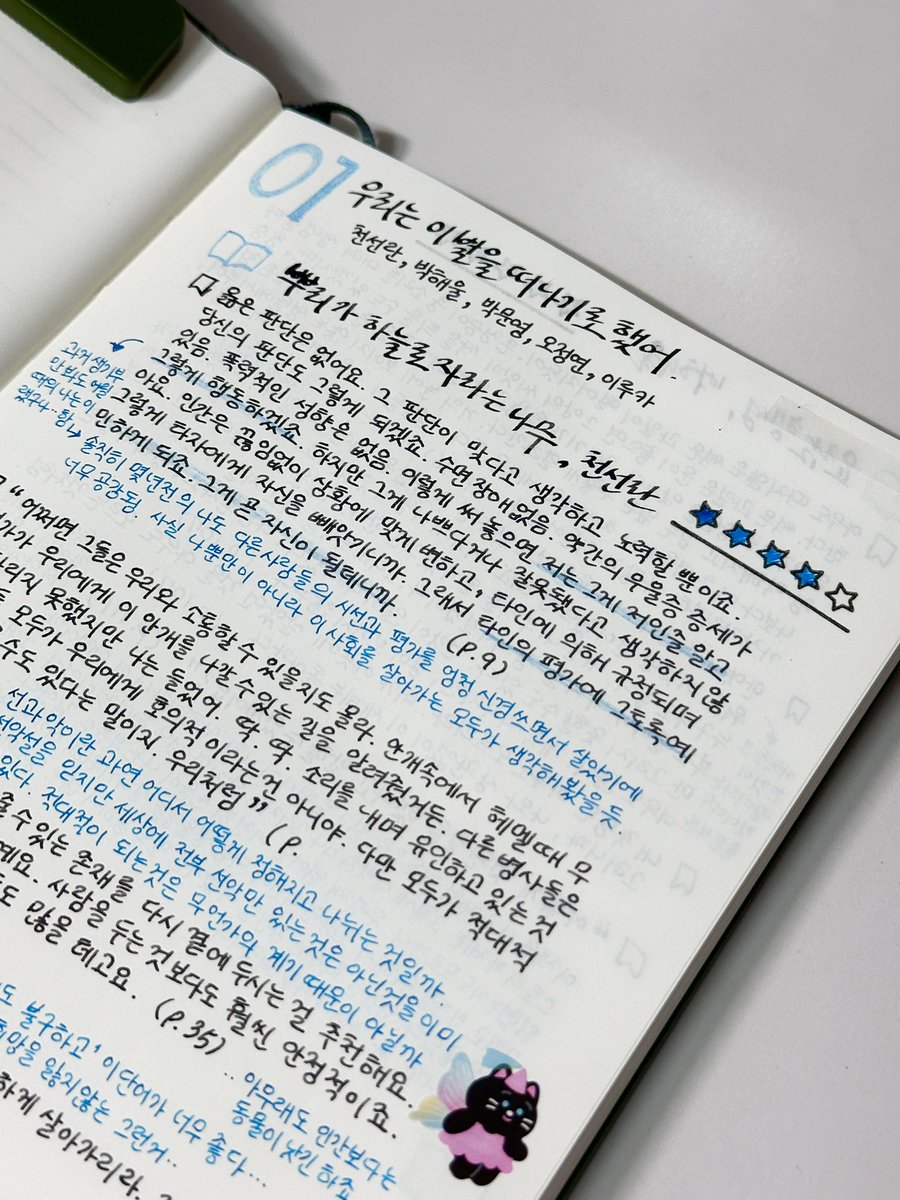 01 우리는 이별을 떠나기로 했어.
천선란, 박해울, 박문영, 오정연, 이루카
뿌리가 하늘로 자라는 나무, 천선란
옳은 판단은 없어요. 그 판단이 맞다고 생각하고 노력할 뿐이죠.
당신의 판단도 그렇게 되겠죠. 수면장애 없음. 약간의 우울증 증세가
있음. 폭력적인 성향은 없음. 이렇게 써 놓으면 저는 그게 저인줄 알고
그렇게 행동하겠죠. 하지만 그게 나쁘다거나 잘못됐다고 생각하지 않
아요. 인간은 끊임없이 상황에 맞게 변하고, 타인에 의해 규정되며
그렇게 타자에게 자신을 빼앗기니까. 그래서 타인의 평가에 그토록 예
민하게 되죠. 그게 곧 자신이 될테니까. (p.9)
과거 생기부
만 봐도 어릴
때의 나는 이
랬구나.. 함
솔직히 몇년전의 나도 다른사람들의 시선과 평가를 엄청 신경쓰면서 살았기에
너무 공감됨. 사실 나뿐만이 아니라 이 사회를 살아가는 모두가 생각해봤을듯.
"어쩌면 그들은 우리와 소통할 수 있을지도 몰라. 안개속에서 헤멜때 무
가가 우리에게 이 안개를 나갈 수 있는 길을 알려줬거든. 다른 병사들은
차리지 못했지만 나는 들었어. 딱. 딱. 소리를 내며 유인하고 있는 것
모두가 우리에게 호의적이라는건 아니야. 다만 모두가 적대적
수도 있다는 말이지. 우리처럼" (p.
선과 악이란 과연 어디서 어떻게 정해지고 나뉘는 것일까.
선악설을 믿지만 세상에 전부 선악만 있는 것은 아닌것을 이미
있다. 적대적이 되는것은 무언가의 계기 때문이 아닐까
줄 수 있는 존재를 다시 곁에 두시는 걸 추천해요.
예요. 사람을 두는 것보다도 훨씬 안정적이죠.
도 많을 테고요. (p.35)
도 불구하고' 이 단어가 너무 좋다...
희망을 잃지 않는 그런거..
.. 아무래도 인간보다는
동물이 낫긴 하죠
하게 살아가리라.